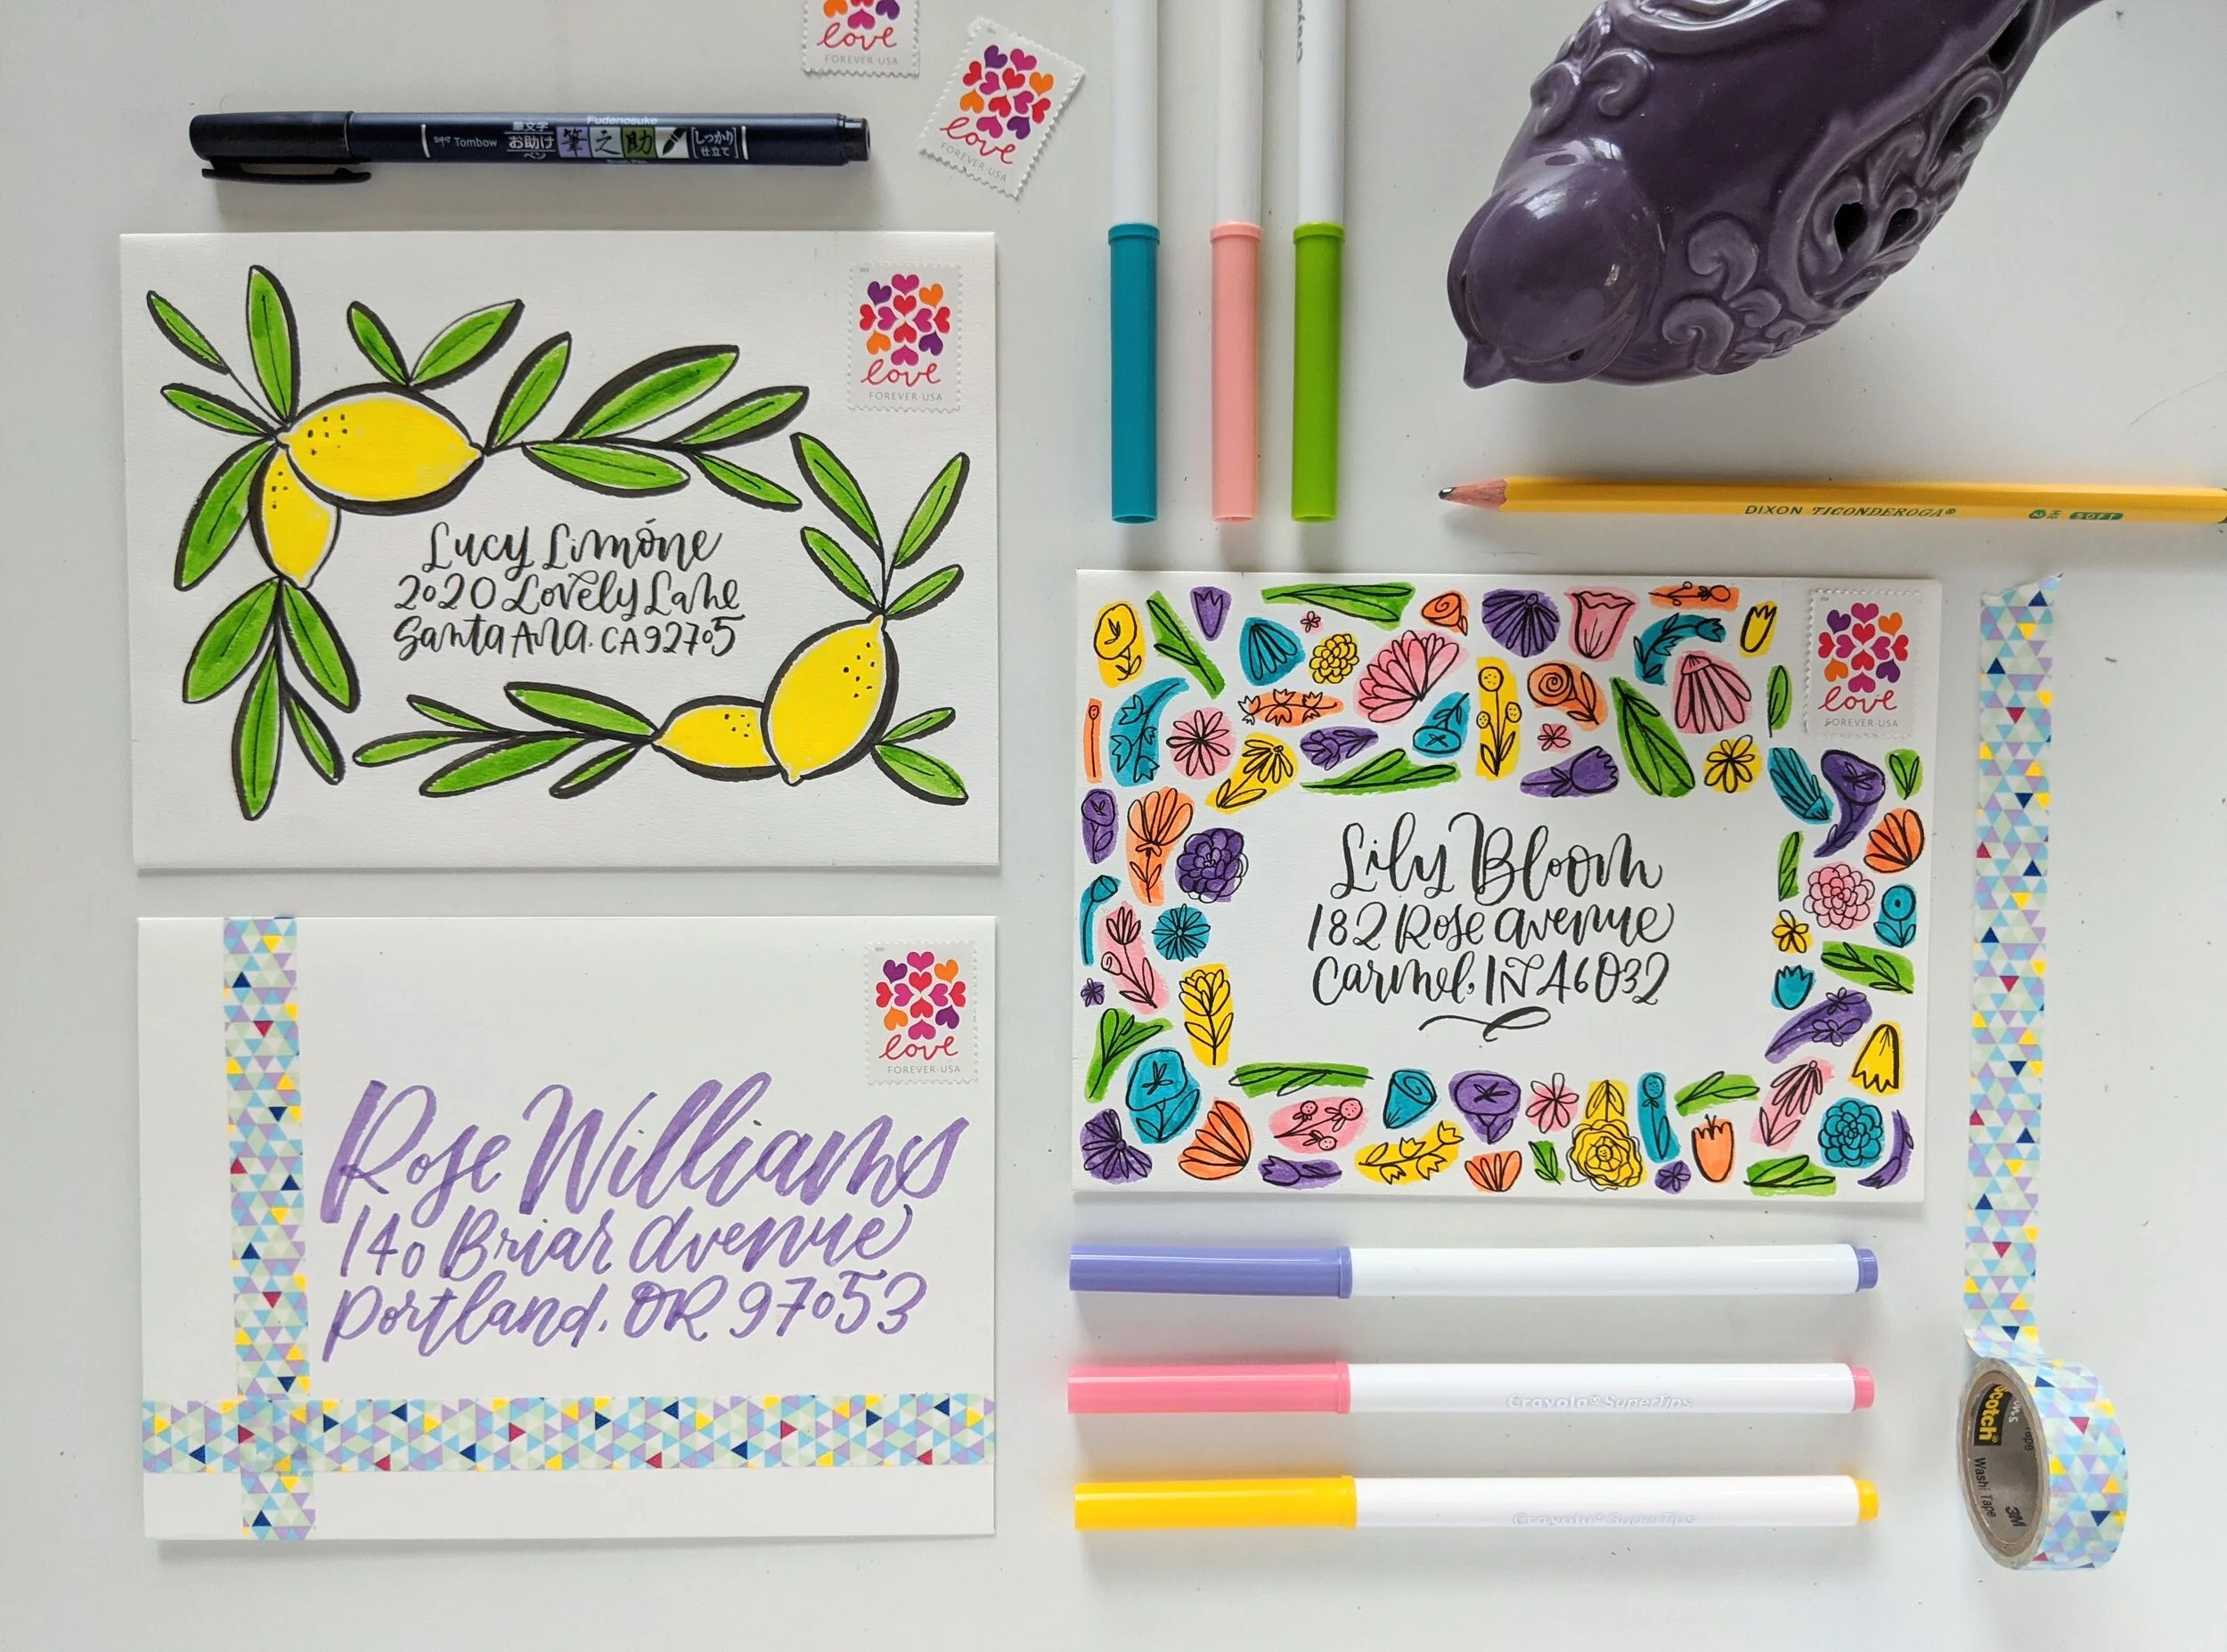 love
FOREVER USA
love
FOREVER USA
Crayola
Fudenosuke
Tombow
筆文字
お助け
ペン
筆之助
しっかり
仕立て
Brush Pen
love
FOREVER·USA
Lucy Limóne
2020 Lovely Lane
Santa Ana. CA 92705
DIXON TICONDEROGA®
2 SOFT
love
FOREVER·USA
Lily Bloom
182 Rose Avenue
Carmel, IN 46032
love
FOREVER·USA
Rose Williams
140 Briar Avenue
Portland, OR 97053
Crayola® SuperTips
Crayola® SuperTips
Scotch®
Washi Tape
3M